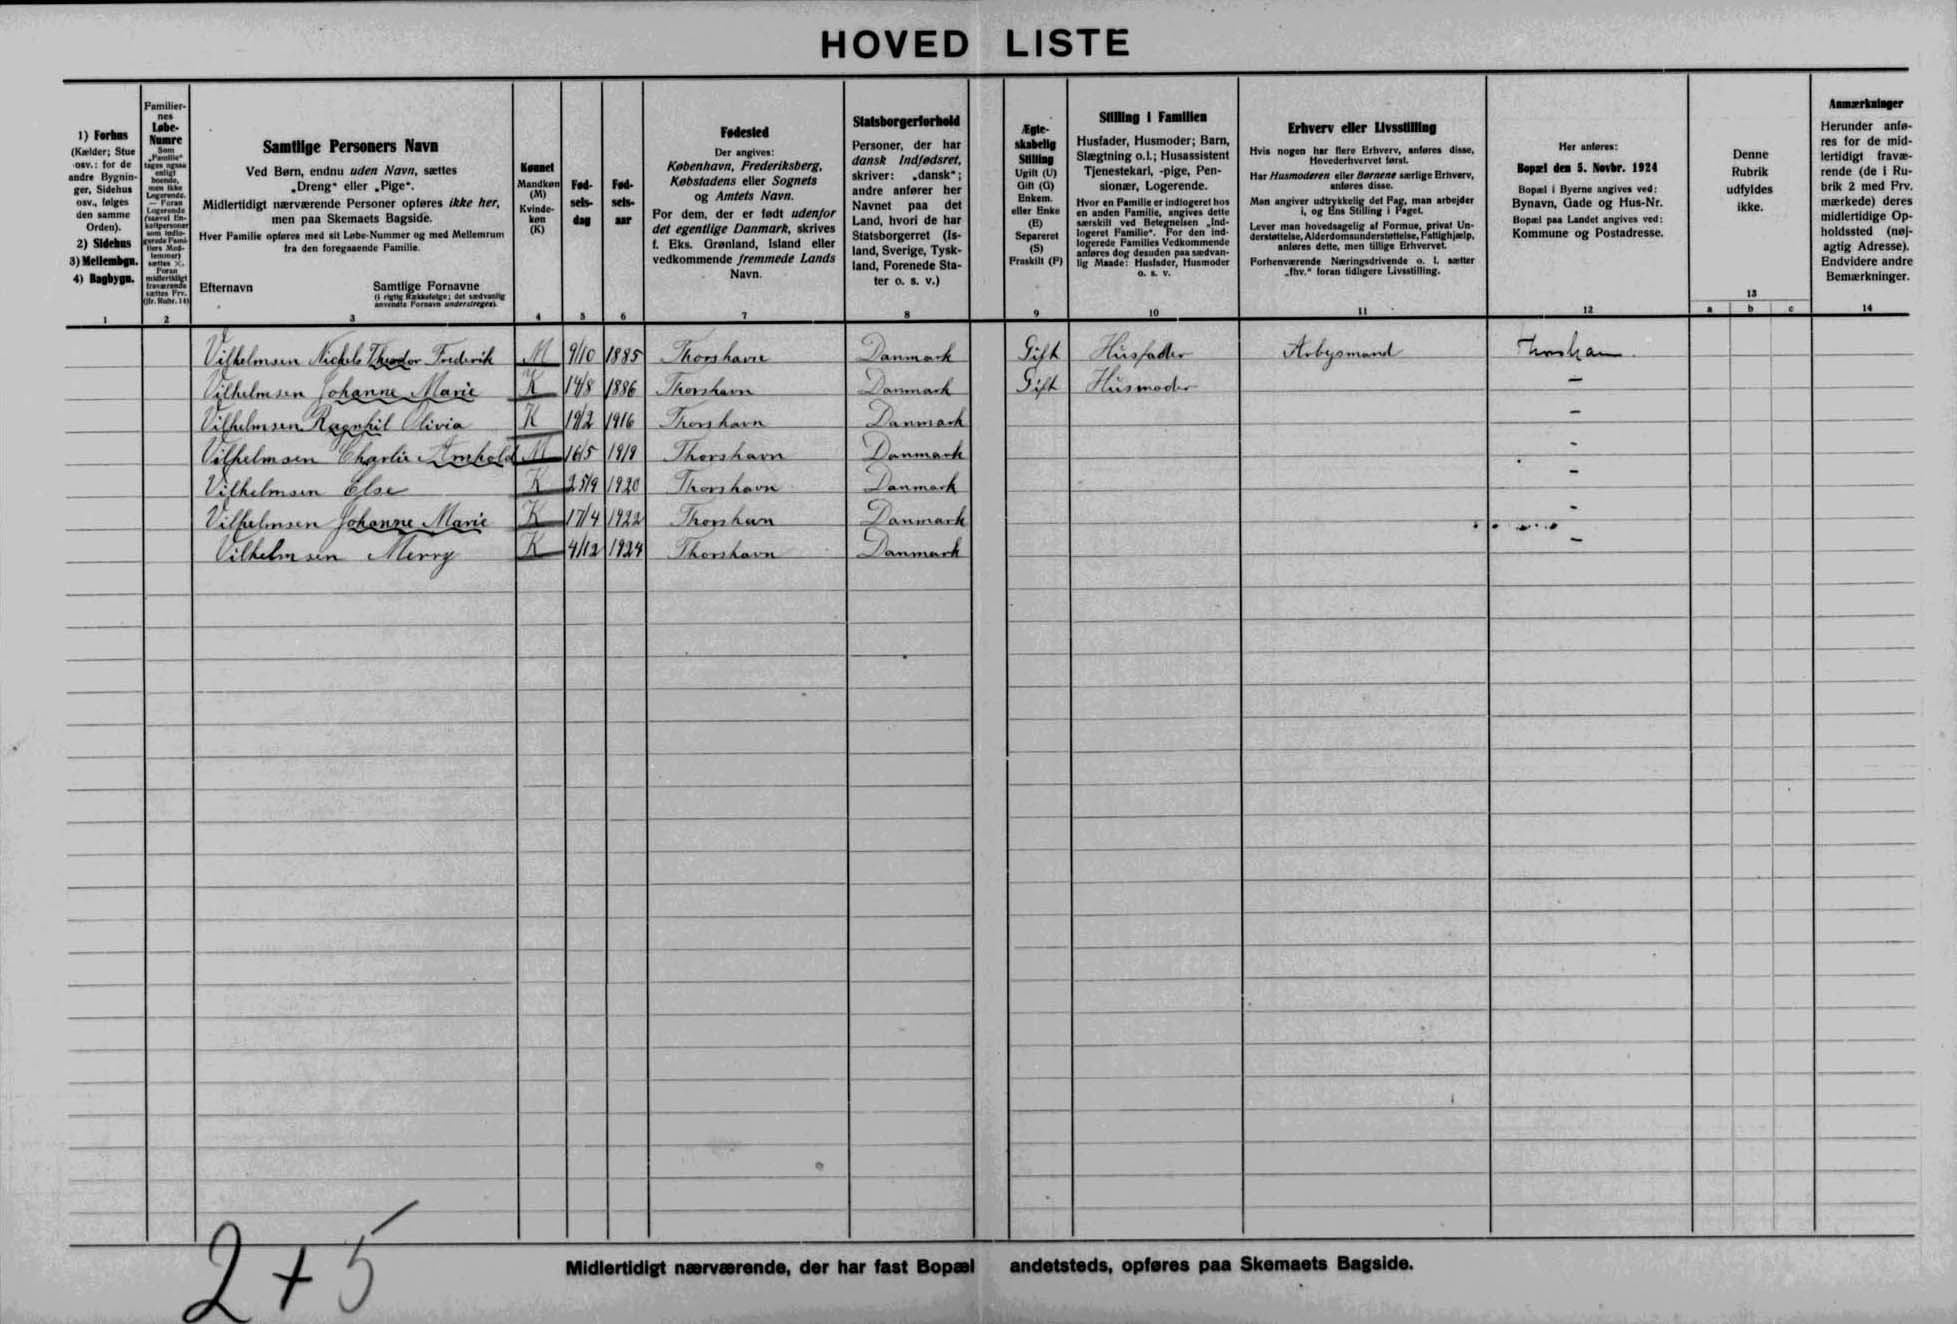 HOVED LISTE
1) Forhus
(Kælder; Stue
osv.: for de
andre Bygnin-
ger, Sidehus
osv., følges
den samme
Orden).
2) Sidehus
3) Mellembgn.
4) Bagbygn.
1
Familier-
nes
Løbe-
Numre
Som
„Familie“
tages ogsaa
enligt
boende,
men ikke
Logerende.
— Foran
Logerende
(saavel En-
keltpersoner
som indlo-
gerede Fami-
liers Med-
lemmer)
sættes ×.
Foran
midlertidigt
fraværende
sættes Frv.
(jfr. Rubr. 14)
2
Samtlige Personers Navn
Ved Børn, endnu uden Navn, sættes
„Dreng“ eller „Pige“.
Midlertidigt nærværende Personer opføres ikke her,
men paa Skemaets Bagside.
Hver Familie opføres med sit Løbe-Nummer og med Mellemrum
fra den foregaaende Familie.
Efternavn
Samtlige Fornavne
(i rigtig Rækkefølge; det sædvanlig
anvendte Fornavn understreges).
3
Kønnet
Mandkøn
(M)
Kvinde-
køn
(K)
4
Fød-
sels-
dag
5
Fød-
sels-
aar
6
Fødested
Der angives:
København, Frederiksberg,
Købstadens eller Sognets
og Amtets Navn.
For dem, der er født udenfor
det egentlige Danmark, skrives
f. Eks. Grønland, Island eller
vedkommende fremmede Lands
Navn.
7
Statsborgerforhold
Personer, der har
dansk Indfødsret,
skriver: „dansk“;
andre anfører her
Navnet paa det
Land, hvori de har
Statsborgerret (Is-
land, Sverige, Tysk-
land, Forenede Sta-
ter o. s. v.)
8
Ægte-
skabelig
Stilling
Ugift (U)
Gift (G)
Enkem.
eller Enke
(E)
Separeret
(S)
Fraskilt (F)
9
Stilling i Familien
Husfader, Husmoder; Barn,
Slægtning o.l.; Husassistent
Tjenestekarl, -pige, Pen-
sionær, Logerende.
Hvor en Familie er indlogeret hos
en anden Familie, angives dette
særskilt ved Betegnelsen „Ind-
logeret Familie“. For den ind-
logerede Families Vedkommende
anføres dog desuden paa sædvan-
lig Maade: Husfader, Husmoder
o. s. v.
10
Erhverv eller Livsstilling
Hvis nogen har flere Erhverv, anføres disse,
Hovederhvervet først.
Har Husmoderen eller Børnene særlige Erhverv,
anføres disse.
Man angiver udtrykkelig det Fag, man arbejder
i, og Ens Stilling i Faget.
Lever man hovedsagelig af Formue, privat Un-
derstøttelse, Alderdomsunderstøttelse, Fattighjælp,
anføres dette, men tillige Erhvervet.
Forhenværende Næringsdrivende o. l. sætter
„fhv.“ foran tidligere Livsstilling.
11
Her anføres:
Bopæl den 5. Novbr. 1924
Bopæl i Byerne angives ved:
Bynavn, Gade og Hus-Nr.
Bopæl paa Landet angives ved:
Kommune og Postadresse.
12
Denne
Rubrik
udfyldes
ikke.
13
a b c
Anmærkninger
Herunder anfø-
res for de mid-
lertidigt fravæ-
rende (de i Ru-
brik 2 med Frv.
mærkede) deres
midlertidige Op-
holdssted (nøj-
agtig Adresse).
Endvidere andre
Bemærkninger.
14
Vilhelmsen Nickels Theodor Frederik M 9/10 1885 Thorshavn Danmark Gift Husfader Arbysmand Thorshavn
Vilhelmsen Johanne Marie K 14/8 1886 Thorshavn Danmark Gift Husmoder —
Vilhelmsen Ragnhil Olivia K 19/2 1916 Thorshavn Danmark —
Vilhelmsen Charlie Arnhold M 16/5 1919 Thorshavn Danmark -
Vilhelmsen Else K 25/9 1920 Thorshavn Danmark —
Vilhelmsen Johanne Marie K 17/4 1922 Thorshavn Danmark -
Vilhelmsen Merry K 4/12 1924 Thorshavn Danmark —
Midlertidigt nærværende, der har fast Bopæl andetsteds, opføres paa Skemaets Bagside.
2 + 5